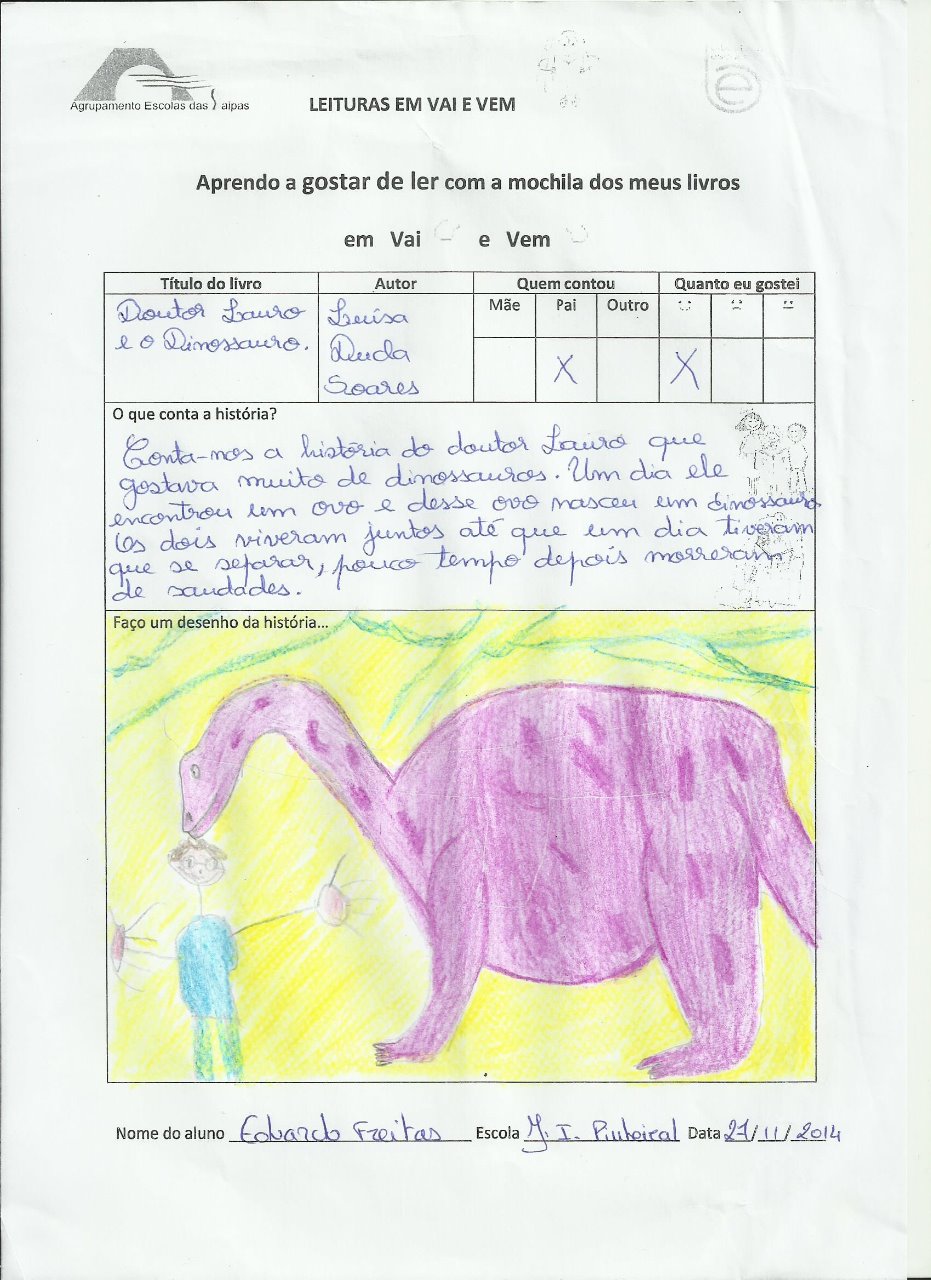 Agrupamento Escolas das Taipas
LEITURAS EM VAI E VEM
Aprendo a gostar de ler com a mochila dos meus livros
em Vai e Vem
Título do livro Autor Quem contou Quanto eu gostei
Mãe Pai Outro
Doutor Lauro
e o Dinossauro.
Luísa
Duda
Soares
X X
O que conta a história?
Conta-nos a história do doutor Lauro que
gostava muito de dinossauros. Um dia ele
encontrou um ovo e desse ovo nasceu um dinossauro
Os dois viveram juntos até que um dia tiveram
que se separar, pouco tempo depois morreram
de saudades.
Faço um desenho da história...
Nome do aluno Eduardo Freitas Escola J. I. Pinheiral Data 27/11/2014